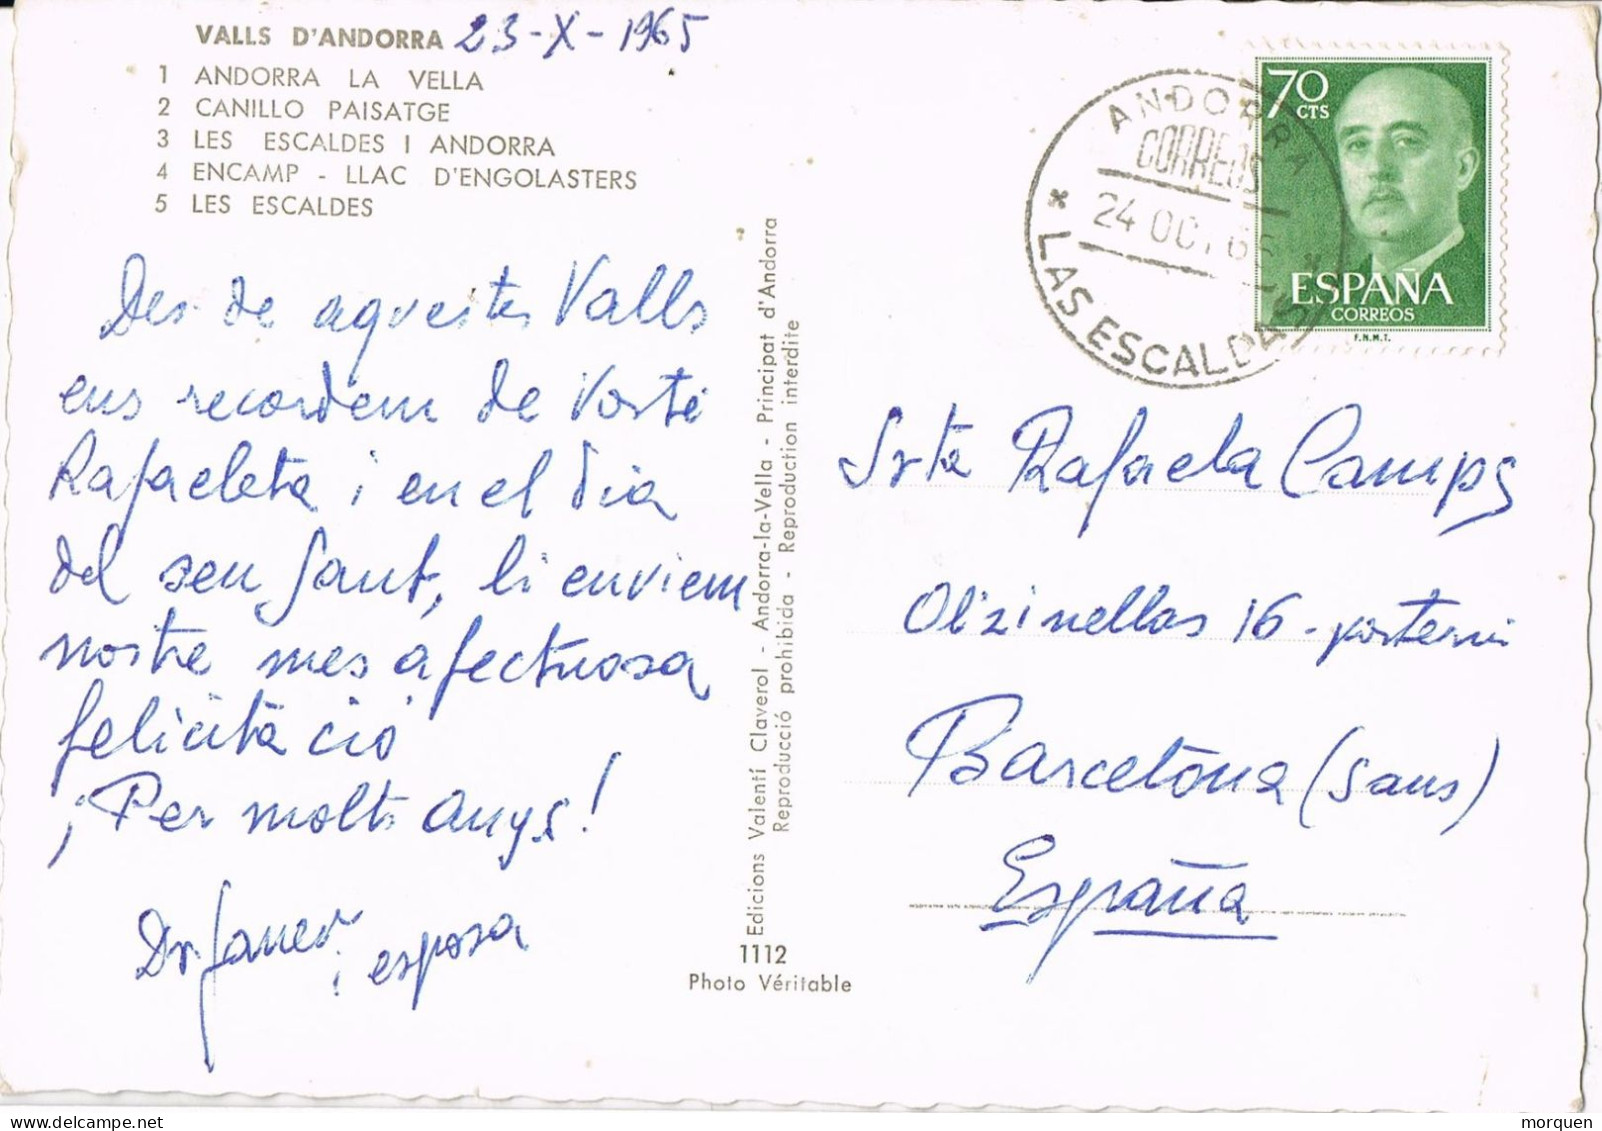 VALLS D'ANDORRA 23-X-1965
1 ANDORRA LA VELLA
2 CANILLO PAISATGE
3 LES ESCALDES I ANDORRA
4 ENCAMP - LLAC D'ENGOLASTERS
5 LES ESCALDES
Des de aquestes Valls
ens recordem de Vosté
Rafaeleta i en el dia
del seu Sant, li enviem
nostre mes afectuosa
felicitació
¡Per molts anys!
Dr Janer
i esposa
Edicions Valentí Claverol - Andorra-la-Vella - Principat d'Andorra
Reproducció prohibida - Reproduction interdite
1112
Photo Véritable
ANDORRA
CORREOS
24 OCT 65
* LAS ESCALDAS *
70
CTS
ESPAÑA
CORREOS
F.N.M.T.
Srta Rafaela Camps
Olzinellas 16 - porteria
Barcelona (Sans)
España
morquen